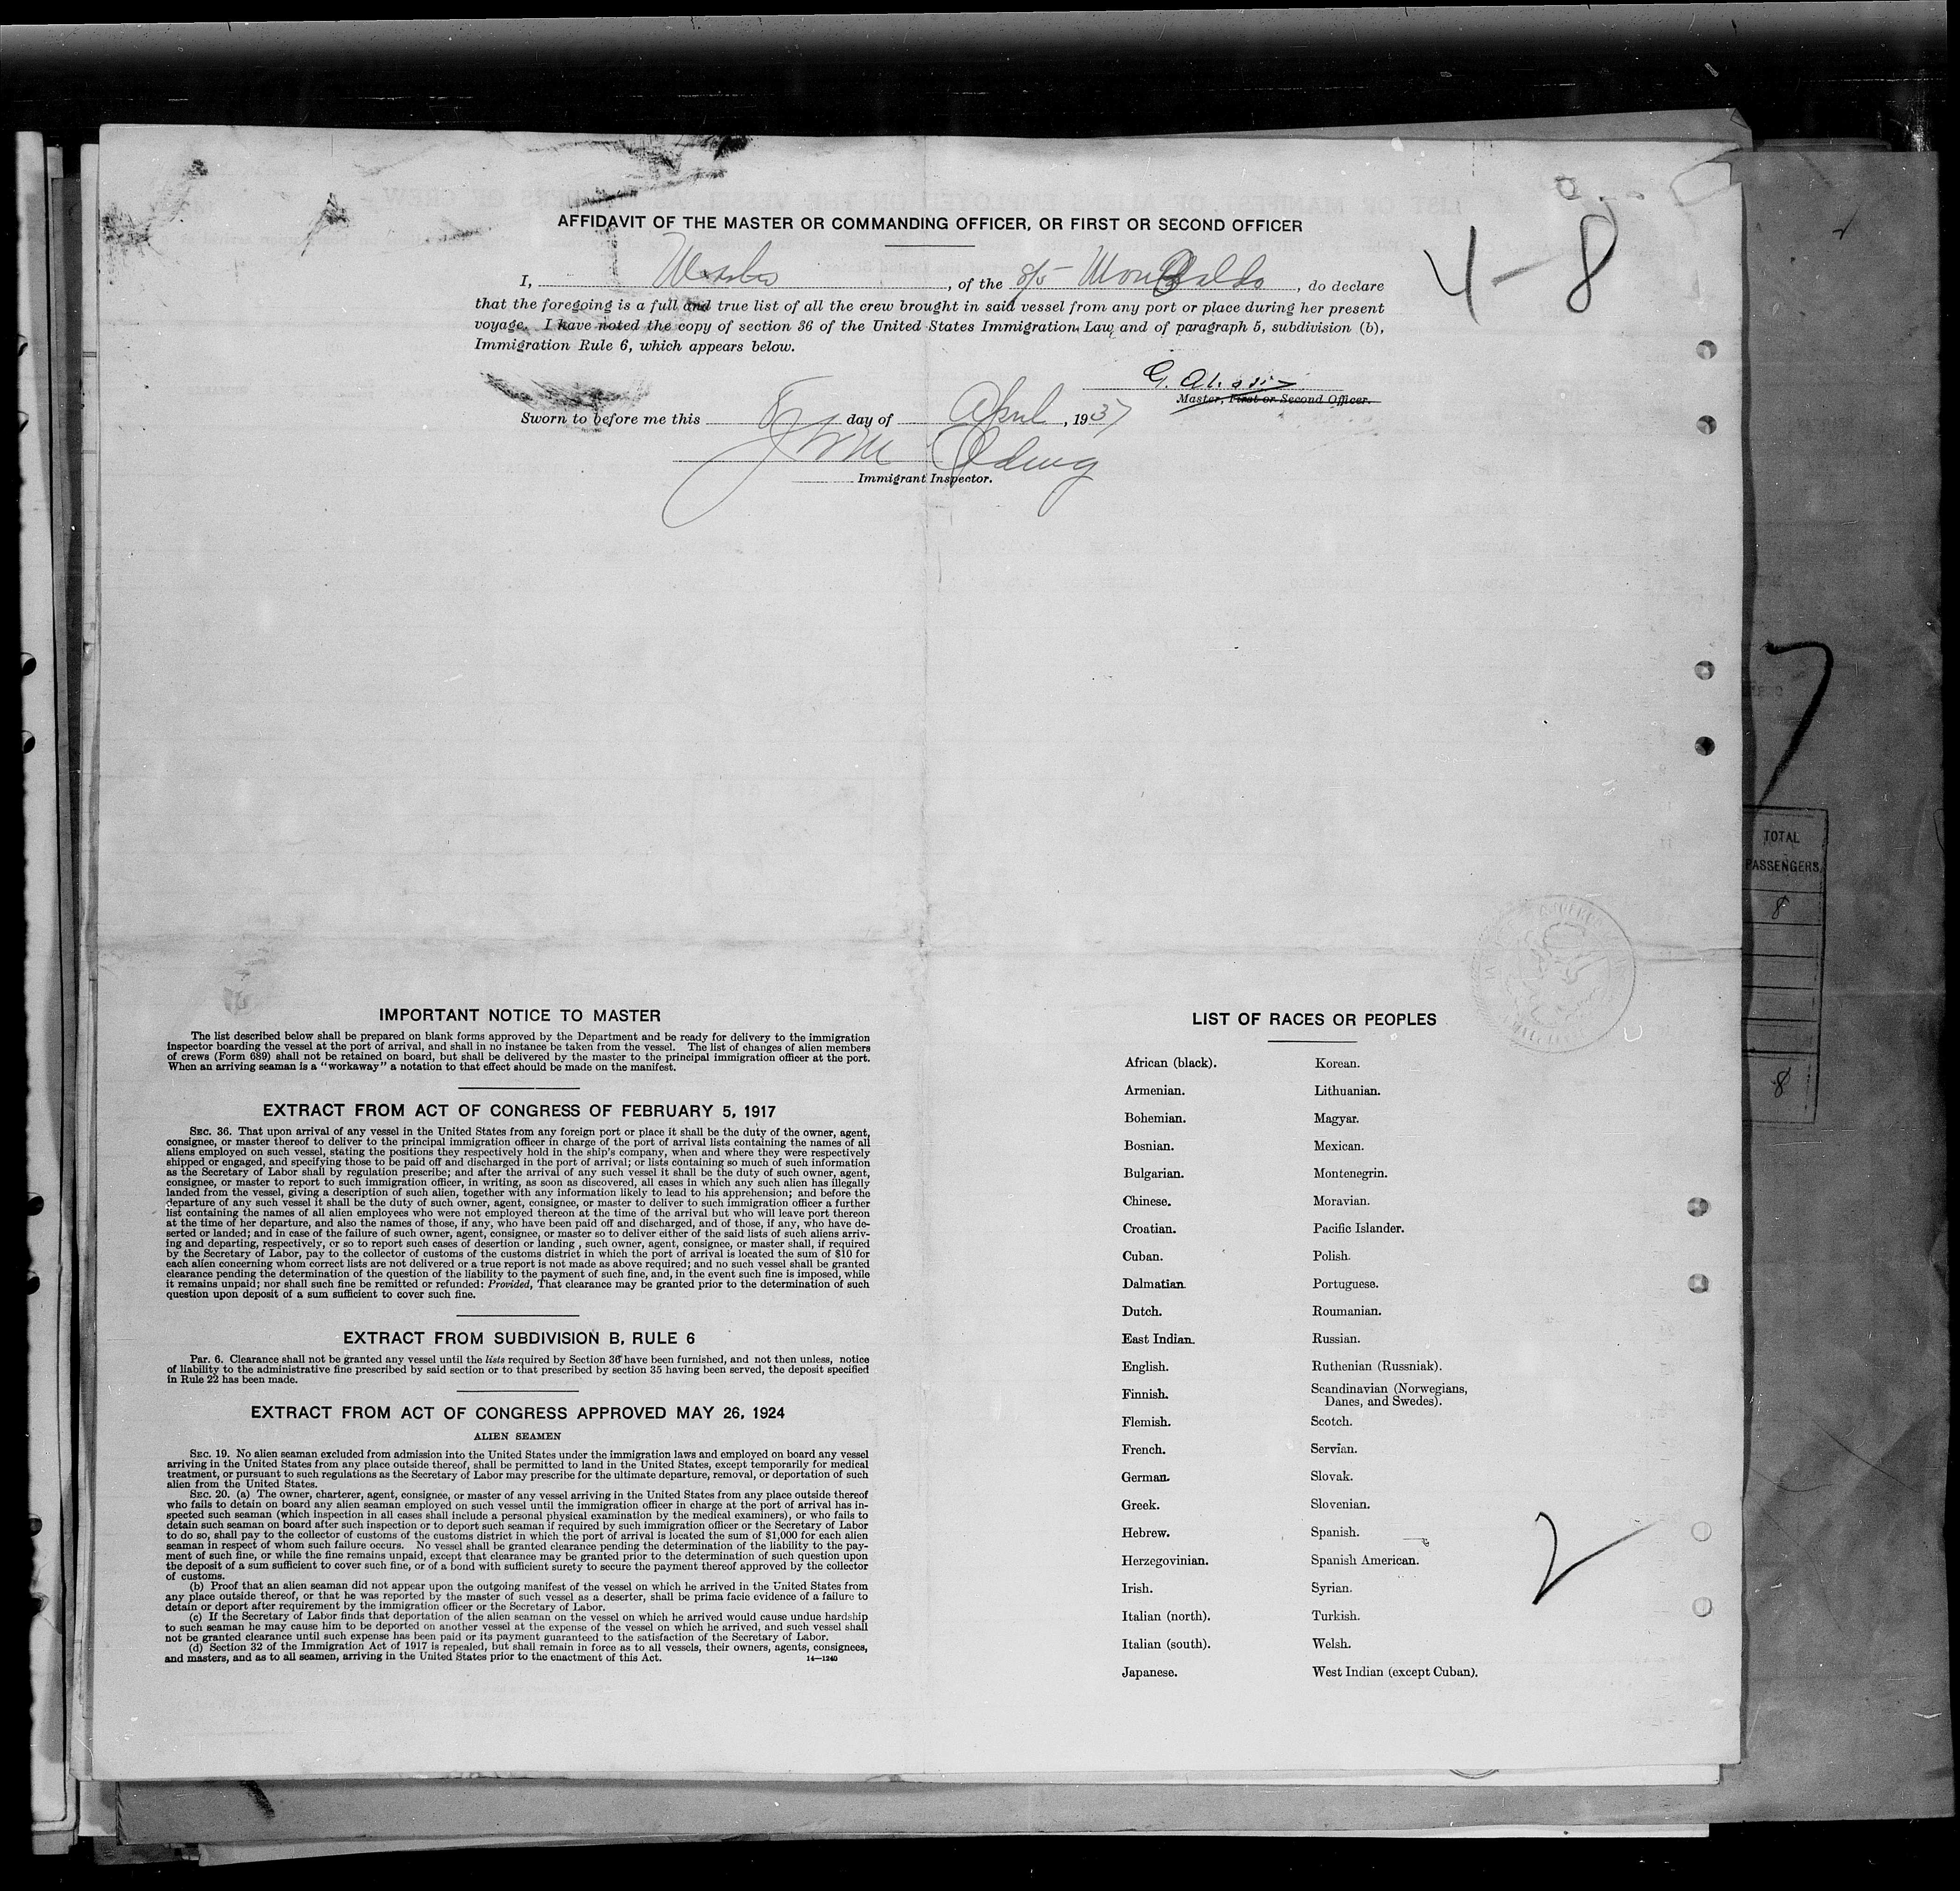 AFFIDAVIT OF THE MASTER OR COMMANDING OFFICER, OR FIRST OR SECOND OFFICER
4-8
I, Master, of the S/S Mongbaldo, do declare
that the foregoing is a full and true list of all the crew brought in said vessel from any port or place during her present
voyage. I have noted the copy of section 36 of the United States Immigration Law, and of paragraph 5, subdivision (b),
Immigration Rule 6, which appears below.
G.
Master, First or Second Officer.
Sworn to before me this 8 day of April, 1937
Immigrant Inspector.
7
TOTAL
PASSENGERS
8
8
IMPORTANT NOTICE TO MASTER
The list described below shall be prepared on blank forms approved by the Department and be ready for delivery to the immigration
inspector boarding the vessel at the port of arrival, and shall in no instance be taken from the vessel. The list of changes of alien members
of crews (Form 689) shall not be retained on board, but shall be delivered by the master to the principal immigration officer at the port.
When an arriving seaman is a "workaway" a notation to that effect should be made on the manifest.
EXTRACT FROM ACT OF CONGRESS OF FEBRUARY 5, 1917
SEC. 36. That upon arrival of any vessel in the United States from any foreign port or place it shall be the duty of the owner, agent,
consignee, or master thereof to deliver to the principal immigration officer in charge of the port of arrival lists containing the names of all
aliens employed on such vessel, stating the positions they respectively hold in the ship's company, when and where they were respectively
shipped or engaged, and specifying those to be paid off and discharged in the port of arrival; or lists containing so much of such information
as the Secretary of Labor shall by regulation prescribe; and after the arrival of any such vessel it shall be the duty of such owner, agent,
consignee, or master to report to such immigration officer, in writing, as soon as discovered, all cases in which any such alien has illegally
landed from the vessel, giving a description of such alien, together with any information likely to lead to his apprehension; and before the
departure of any such vessel it shall be the duty of such owner, agent, consignee, or master to deliver to such immigration officer a further
list containing the names of all alien employees who were not employed thereon at the time of the arrival but who will leave port thereon
at the time of her departure, and also the names of those, if any, who have been paid off and discharged, and of those, if any, who have de-
serted or landed; and in case of the failure of such owner, agent, consignee, or master so to deliver either of the said lists of such aliens arriv-
ing and departing, respectively, or so to report such cases of desertion or landing, such owner, agent, consignee, or master shall, if required
by the Secretary of Labor, pay to the collector of customs of the customs district in which the port of arrival is located the sum of $10 for
each alien concerning whom correct lists are not delivered or a true report is not made as above required; and no such vessel shall be granted
clearance pending the determination of the question of the liability to the payment of such fine, and, in the event such fine is imposed, while
it remains unpaid; nor shall such fine be remitted or refunded: Provided, That clearance may be granted prior to the determination of such
question upon deposit of a sum sufficient to cover such fine.
EXTRACT FROM SUBDIVISION B, RULE 6
Par. 6. Clearance shall not be granted any vessel until the lists required by Section 36 have been furnished, and not then unless, notice
of liability to the administrative fine prescribed by said section or to that prescribed by section 35 having been served, the deposit specified
in Rule 22 has been made.
EXTRACT FROM ACT OF CONGRESS APPROVED MAY 26, 1924
ALIEN SEAMEN
SEC. 19. No alien seaman excluded from admission into the United States under the immigration laws and employed on board any vessel
arriving in the United States from any place outside thereof, shall be permitted to land in the United States, except temporarily for medical
treatment, or pursuant to such regulations as the Secretary of Labor may prescribe for the ultimate departure, removal, or deportation of such
alien from the United States.
SEC. 20. (a) The owner, charterer, agent, consignee, or master of any vessel arriving in the United States from any place outside thereof
who fails to detain on board any alien seaman employed on such vessel until the immigration officer in charge at the port of arrival has in-
spected such seaman (which inspection in all cases shall include a personal physical examination by the medical examiners), or who fails to
detain such seaman on board after such inspection or to deport such seaman if required by such immigration officer or the Secretary of Labor
to do so, shall pay to the collector of customs of the customs district in which the port of arrival is located the sum of $1,000 for each alien
seaman in respect of whom such failure occurs. No vessel shall be granted clearance pending the determination of the liability to the pay-
ment of such fine, or while the fine remains unpaid, except that clearance may be granted prior to the determination of such question upon
the deposit of a sum sufficient to cover such fine, or of a bond with sufficient surety to secure the payment thereof approved by the collector
of customs.
(b) Proof that an alien seaman did not appear upon the outgoing manifest of the vessel on which he arrived in the United States from
any place outside thereof, or that he was reported by the master of such vessel as a deserter, shall be prima facie evidence of a failure to
detain or deport after requirement by the immigration officer or the Secretary of Labor.
(c) If the Secretary of Labor finds that deportation of the alien seaman on the vessel on which he arrived would cause undue hardship
to such seaman he may cause him to be deported on another vessel at the expense of the vessel on which he arrived, and such vessel shall
not be granted clearance until such expense has been paid or its payment guaranteed to the satisfaction of the Secretary of Labor.
(d) Section 32 of the Immigration Act of 1917 is repealed, but shall remain in force as to all vessels, their owners, agents, consignees,
and masters, and as to all seamen, arriving in the United States prior to the enactment of this Act.
14—1240
LIST OF RACES OR PEOPLES
African (black). Korean.
Armenian. Lithuanian.
Bohemian. Magyar.
Bosnian. Mexican.
Bulgarian. Montenegrin.
Chinese. Moravian.
Croatian. Pacific Islander.
Cuban. Polish.
Dalmatian. Portuguese.
Dutch. Roumanian.
East Indian. Russian.
English. Ruthenian (Russniak).
Finnish. Scandinavian (Norwegians,
Danes, and Swedes).
Flemish. Scotch.
French. Servian.
German. Slovak.
Greek. Slovenian.
Hebrew. Spanish.
Herzegovinian. Spanish American.
Irish. Syrian.
Italian (north). Turkish.
Italian (south). Welsh.
Japanese. West Indian (except Cuban).
2